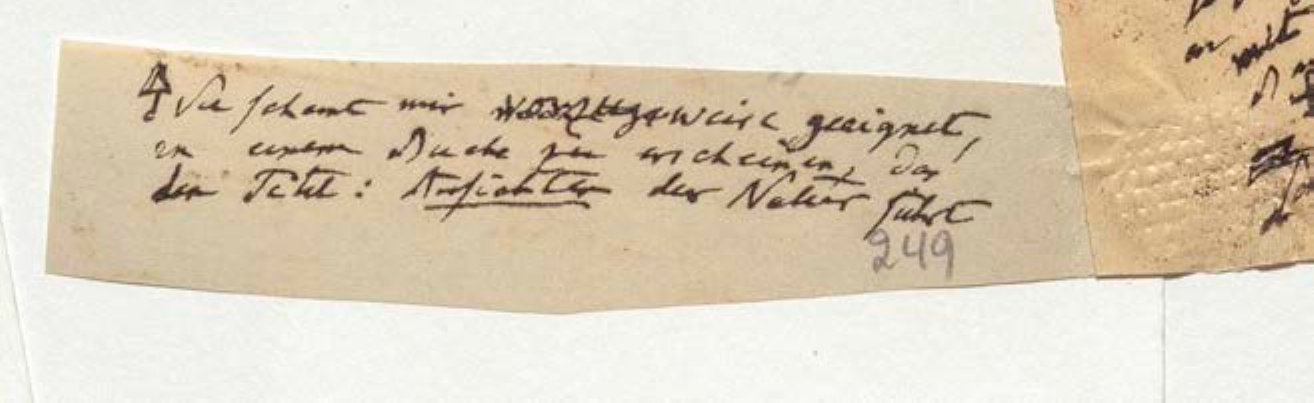 Sie scheint mir vorzugsweise geeignet,
in einem Buche zu erscheinen, das
den Titel: Ansichten der Natur führt
249
mit